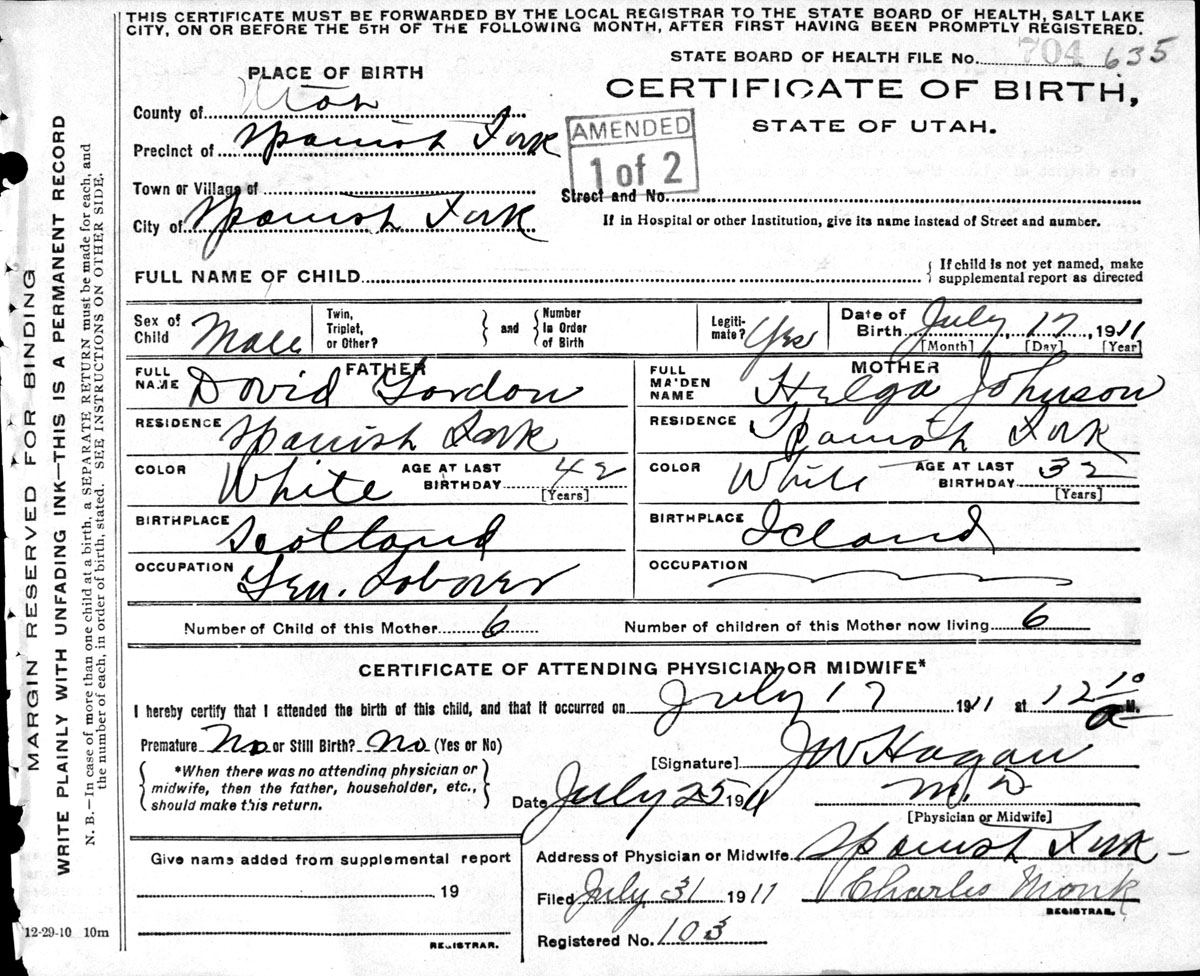 THIS CERTIFICATE MUST BE FORWARDED BY THE LOCAL REGISTRAR TO THE STATE BOARD OF HEALTH, SALT LAKE
CITY, ON OR BEFORE THE 5TH OF THE FOLLOWING MONTH, AFTER FIRST HAVING BEEN PROMPTLY REGISTERED.
STATE BOARD OF HEALTH FILE No. 704 635
PLACE OF BIRTH
CERTIFICATE OF BIRTH,
STATE OF UTAH.
County of Utah
AMENDED
1 of 2
Precinct of Spanish Fork
Town or Village of
Street and No.
City of Spanish Fork
If in Hospital or other Institution, give its name instead of Street and number.
FULL NAME OF CHILD
{ If child is not yet named, make
supplemental report as directed
Sex of Child Male
Twin, Triplet, or Other? } and { Number In Order of Birth
Legiti-mate? Yes
Date of Birth July 17, 1911
[Month] [Day] [Year]
FATHER
FULL NAME David Gordon
RESIDENCE Spanish Fork
COLOR White AGE AT LAST BIRTHDAY 42
[Years]
BIRTHPLACE Scotland
OCCUPATION Gen. Laborer
MOTHER
FULL MAIDEN NAME Helga Johnson
RESIDENCE Spanish Fork
COLOR White AGE AT LAST BIRTHDAY 32
[Years]
BIRTHPLACE Icland
OCCUPATION
Number of Child of this Mother 6 Number of children of this Mother now living 6
CERTIFICATE OF ATTENDING PHYSICIAN OR MIDWIFE*
I hereby certify that I attended the birth of this child, and that it occurred on July 17 1911 at 12 10 a M.
Premature No or Still Birth? No (Yes or No)
[Signature] J W Hagan
{ *When there was no attending physician or
midwife, then the father, householder, etc.,
should make this return. }
Date July 25 1911 M. D
[Physician or Midwife]
Give name added from supplemental report
19
REGISTRAR.
Address of Physician or Midwife Spanish Fork
Filed July 31 1911 Charles Monk
REGISTRAR.
Registered No. 103
12-29-10 10m
MARGIN RESERVED FOR BINDING
WRITE PLAINLY WITH UNFADING INK—THIS IS A PERMANENT RECORD
N. B.—In case of more than one child at a birth, a SEPARATE RETURN must be made for each, and
the number of each, in order of birth, stated. SEE INSTRUCTIONS ON OTHER SIDE.